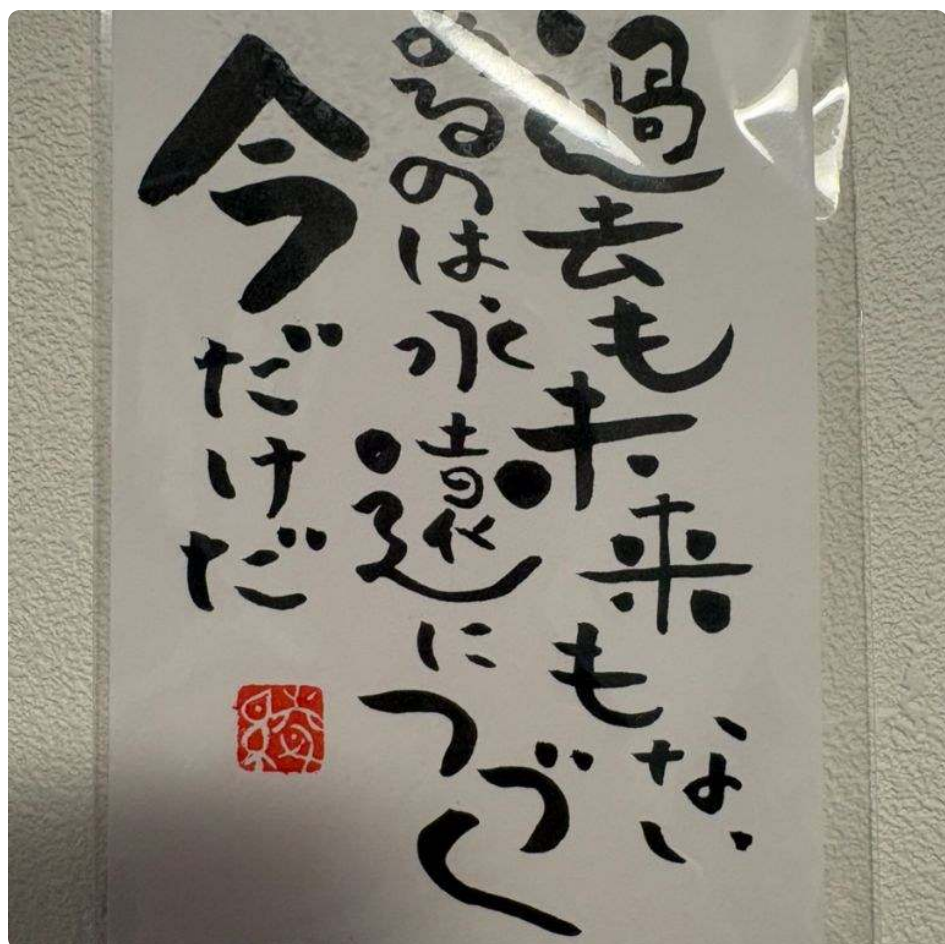 過去も未来もない
あるのは永遠につづく
今だけだ